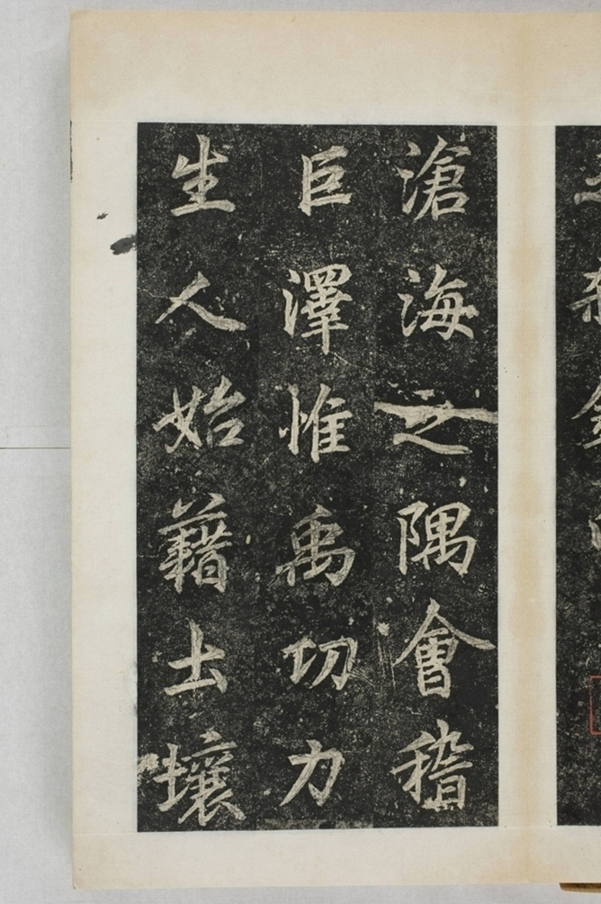 滄海之隅會稽
巨澤惟禹功力
生人始藉土壤